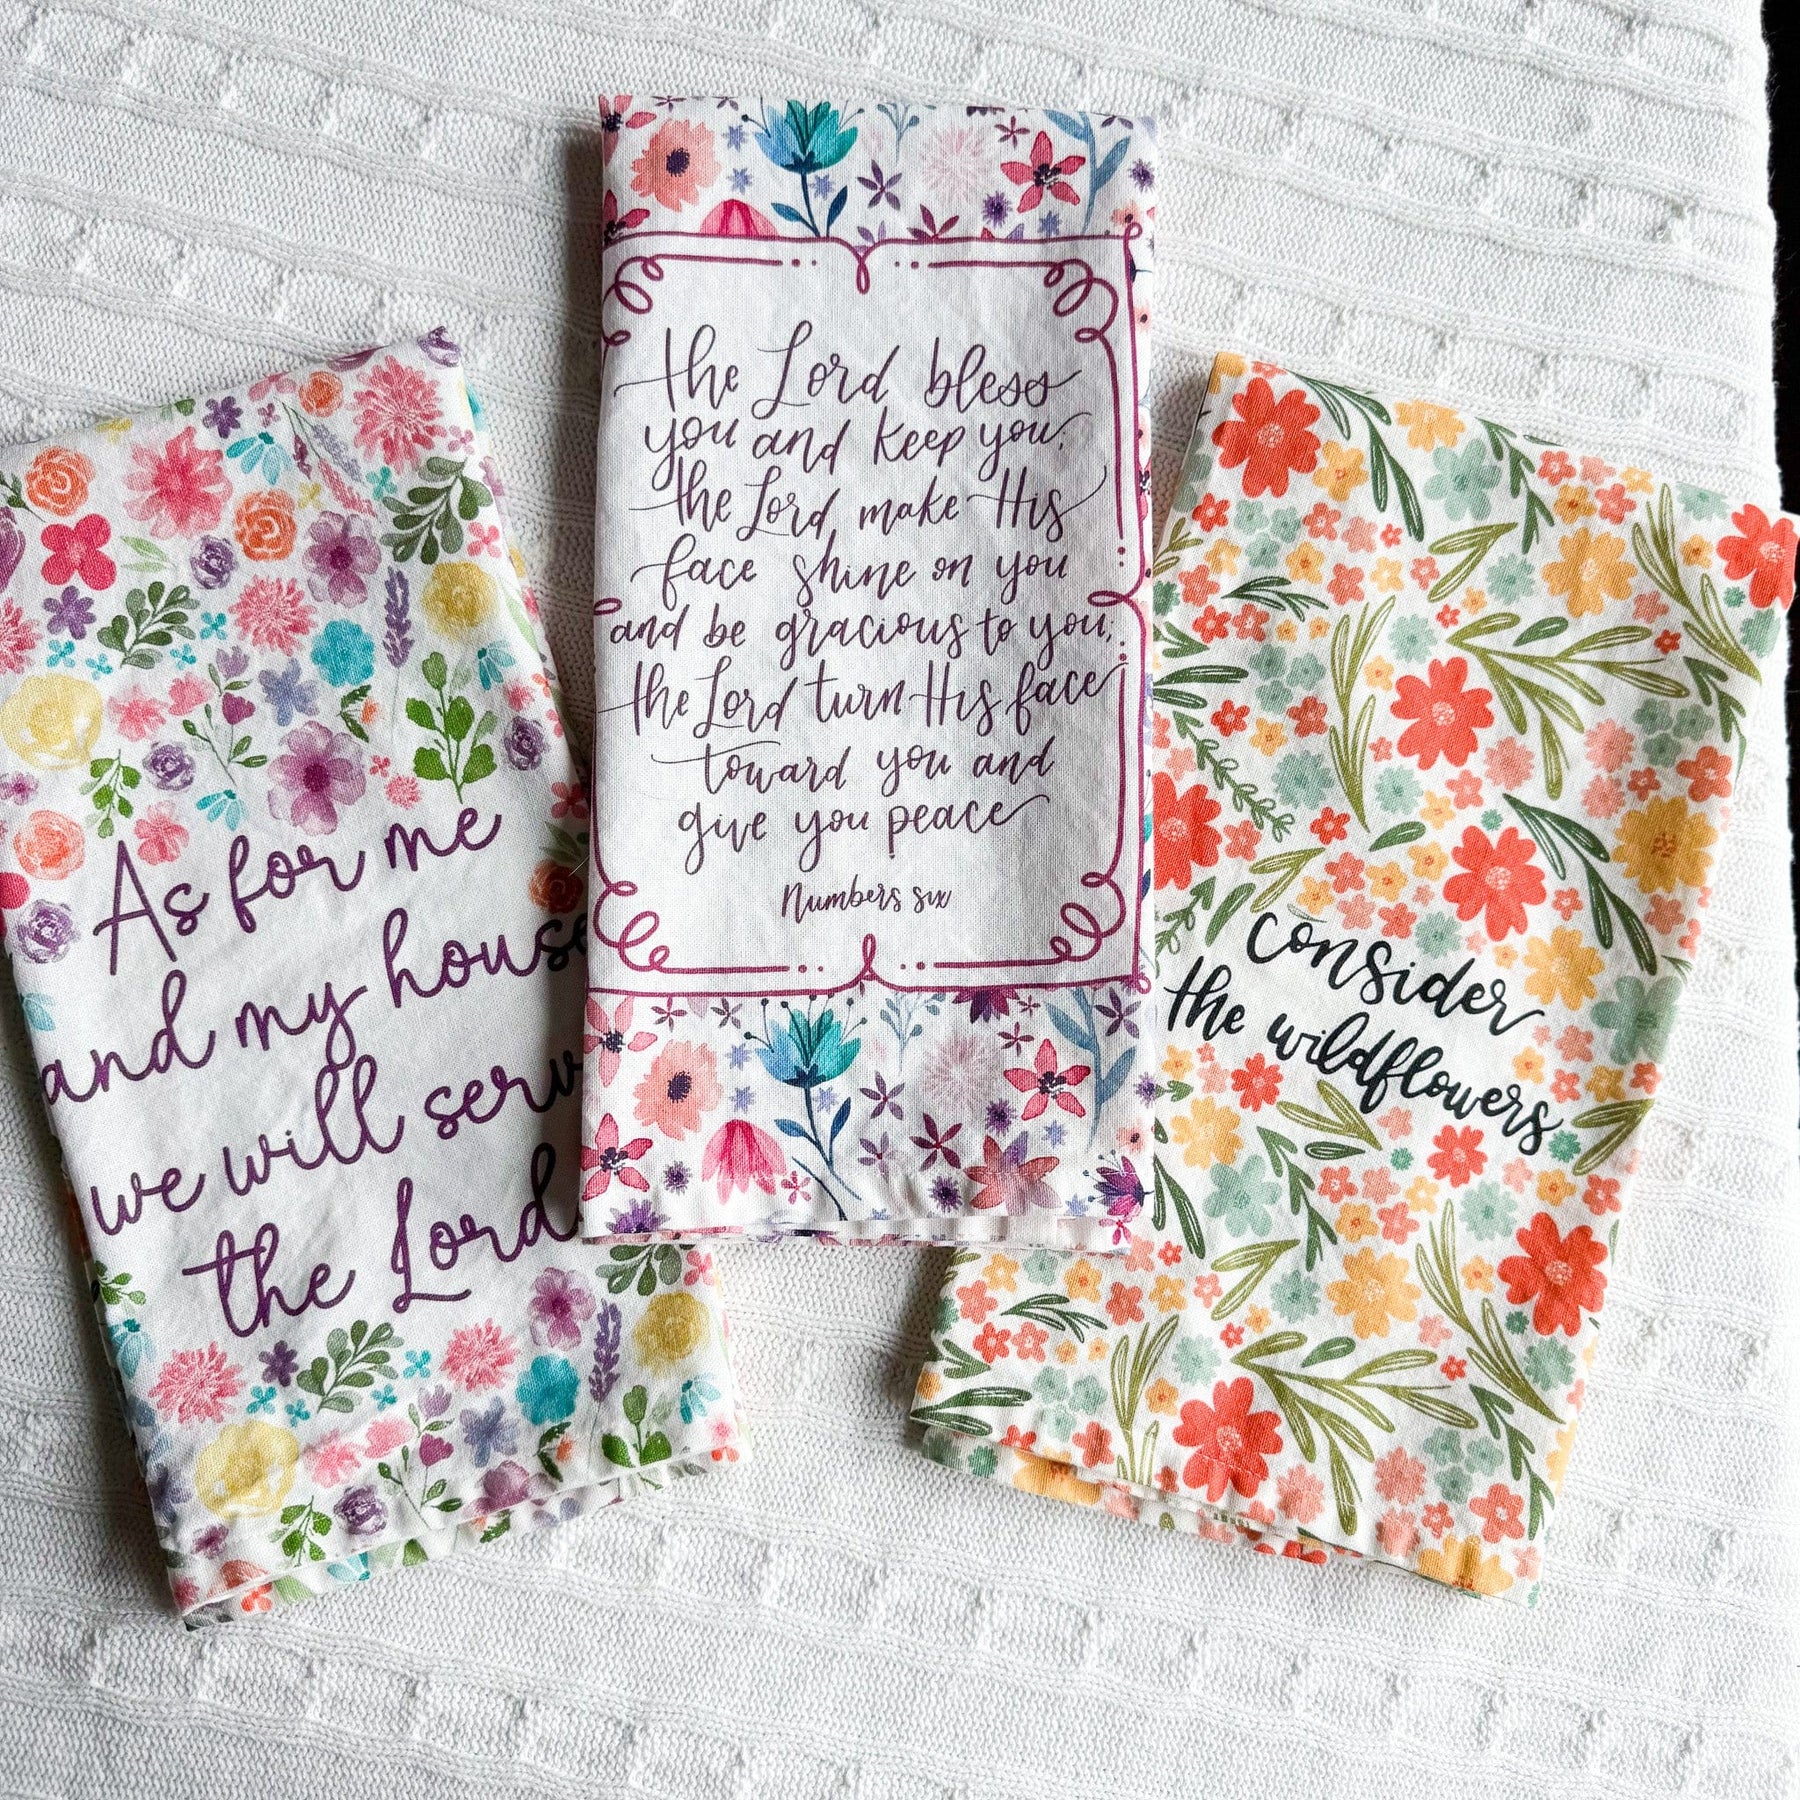 As for me
and my house
we will serv
the Lord
the Lord bless
you and keep you;
the Lord make His
face shine on you
and be gracious to you;
the Lord turn His face
toward you and
give you peace
Numbers six
consider
the wildflowers